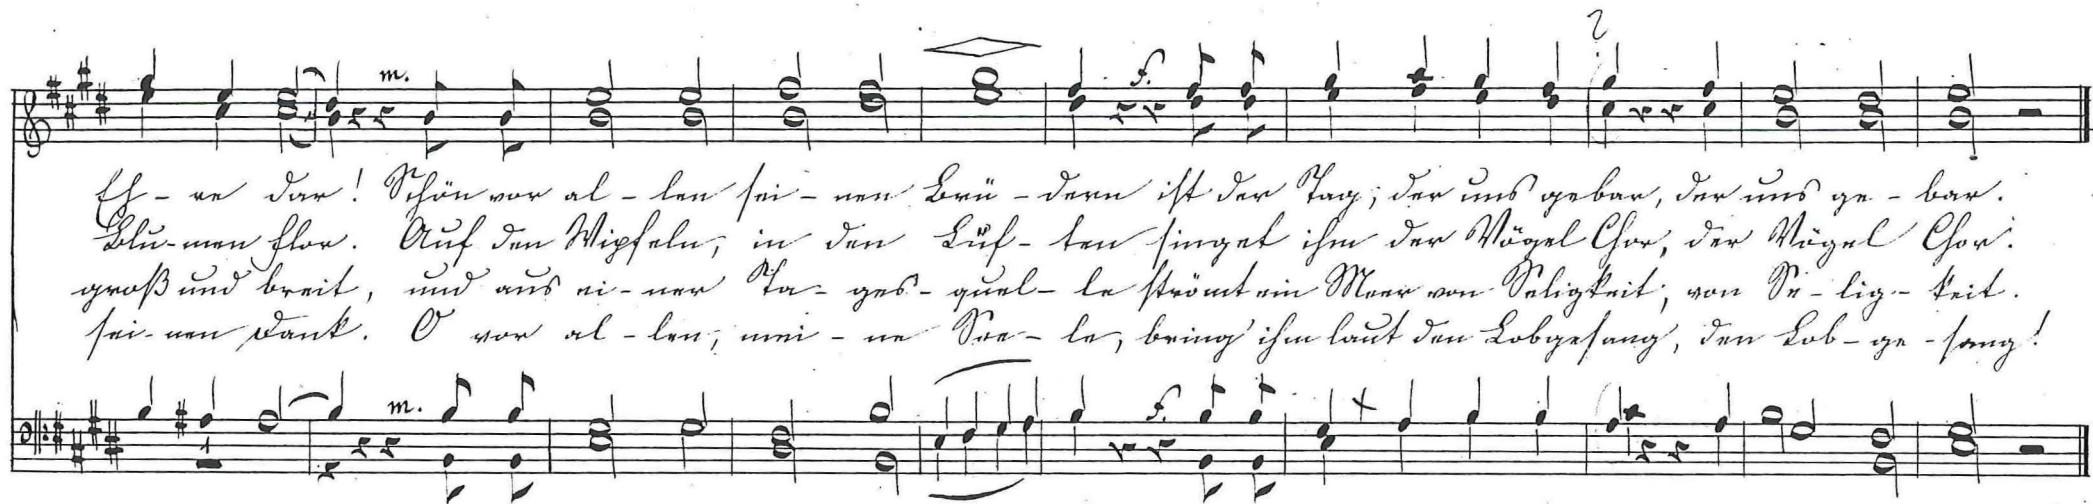 ?
m. f.
Eh - re dar! Schön vor al - len sei - nen Brü - dern ist der Tag, der uns gebar, der uns ge - bar.
Blu - men Flor. Auf den Wipfeln, in den Lüf - ten singet ihm der Vögel Chor, der Vögel Chor.
groß und breit, und aus ei - ner Ta - ges - quel - le strömt ein Meer von Seligkeit, von Se - lig - keit.
sei - nen Dank. O vor al - len, mei - ne See - le, bring' ihm laut den Lobgesang, den Lob - ge - sang!
m. f.